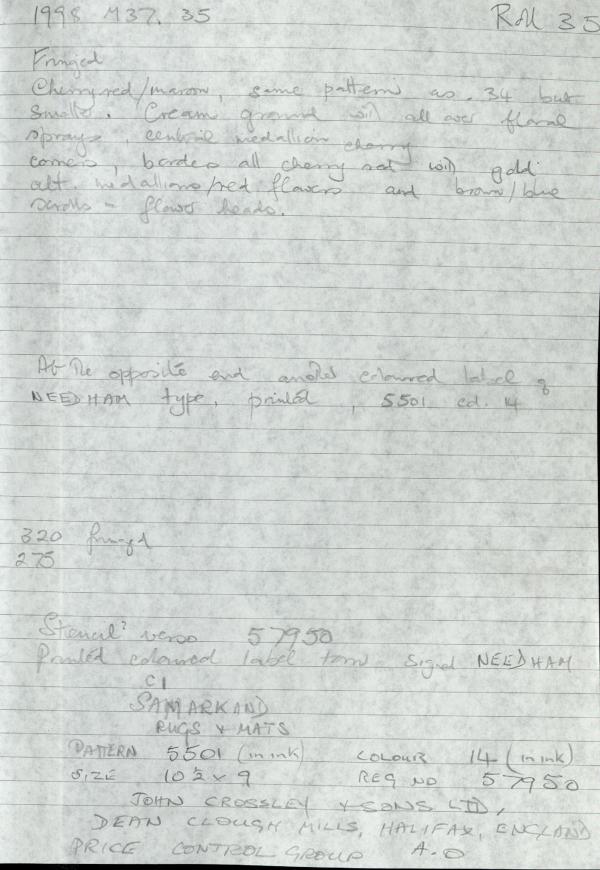 1998 M37. 35 Roll 35
Fringed
Cherry red/maron, same pattern as .34 but
smaller. Cream ground with all over floral
sprays, central medallion cherry
corners, borders all cherry red with gold
alt. medallions/red flowers and brown/blue
scrolls - flower heads.
At the opposite end another coloured label of
NEEDHAM type, printed, 5501 col. 14
320 fringed
275
Stencil? verso 57950
Printed coloured label torn signed NEEDHAM
C1
SAMARKAND
RUGS & MATS
PATTERN 5501 (in ink) COLOUR 14 (in ink)
SIZE 10½ x 9 REG NO 57950
JOHN CROSSLEY & SONS LTD,
DEAN CLOUGH MILLS, HALIFAX, ENGLAND
PRICE CONTROL GROUP A.O